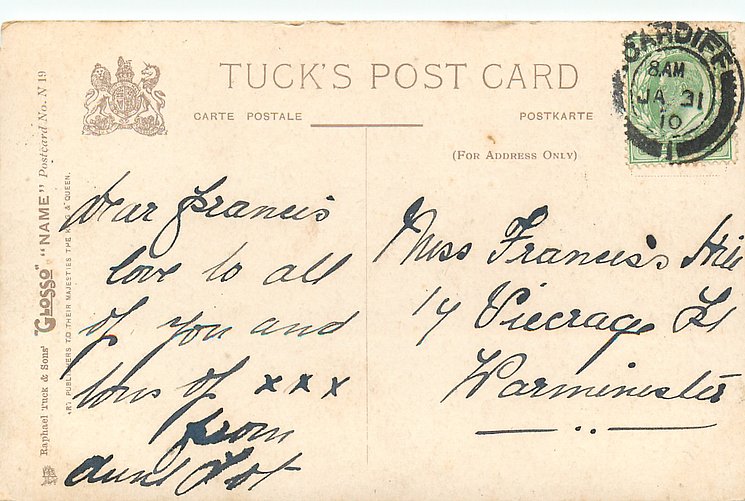 TUCK'S POST CARD
CARTE POSTALE
POSTKARTE
(FOR ADDRESS ONLY)
CARDIFF
8 AM
JA 31
10
1
Raphael Tuck & Sons' "GLOSSO" "NAME" Postcard No. N 19
ART PUBLISHERS TO THEIR MAJESTIES THE KING & QUEEN.
Dear Francis
love to all
of you and
tons of x x x
from
Aunt Dot
Miss Francis's Hill
14 Viecrage St
Warminester